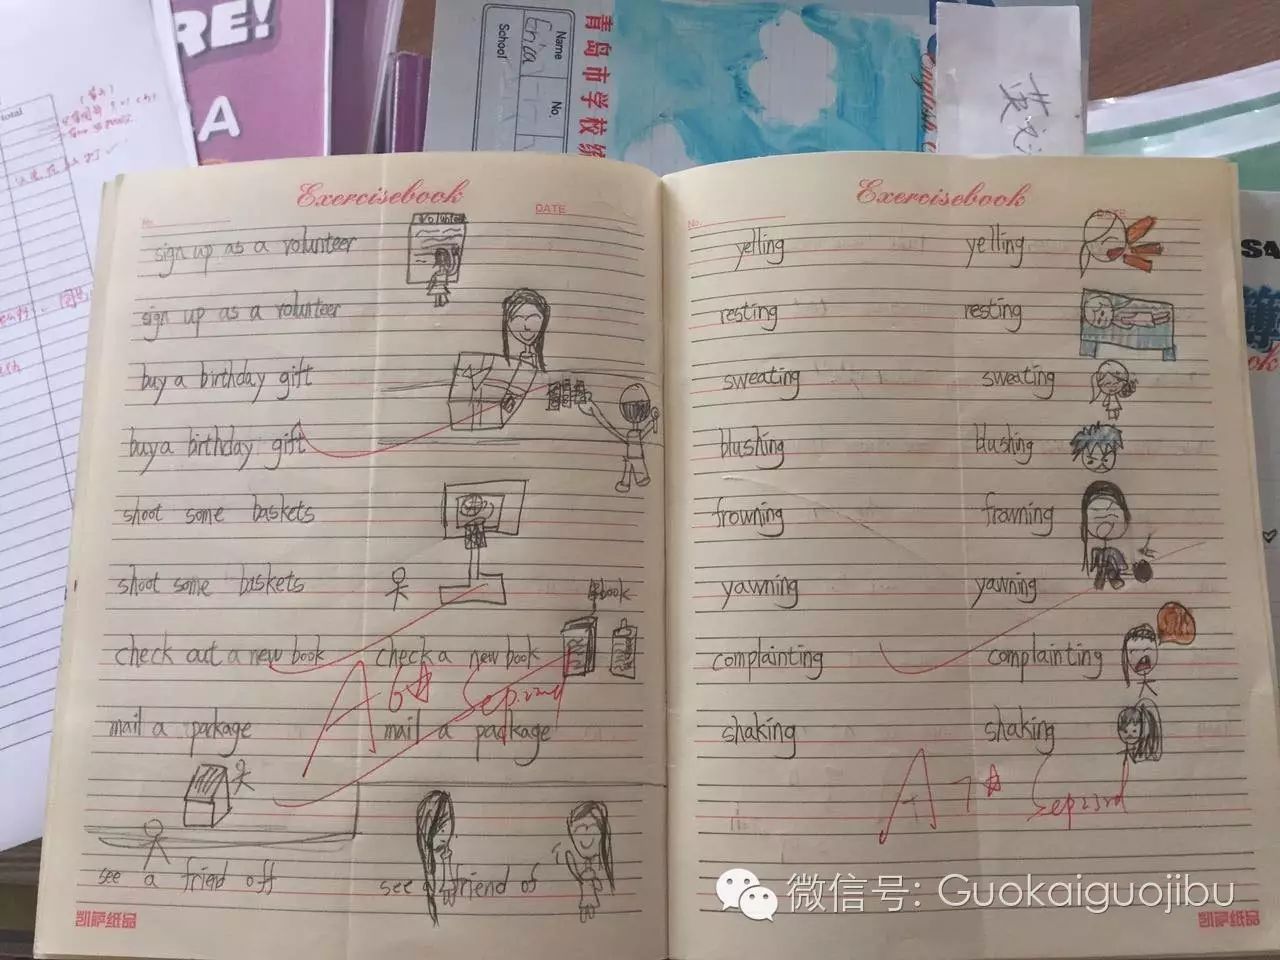 total
RE!
A
Name
Erica
No.
School
青岛市学校练
English
英文
Exercisebook
No.
DATE
sign up as a volunteer
volunteer
sign up as a volunteer
buy a birthday gift
buy a birthday gift
shoot some baskets
shoot some baskets
book
check out a new book
check a new book
A 6☆ Sep.22nd
mail a package
mail a package
see a friend off
see a friend of
凯萨纸品
Exercisebook
No.
DATE
yelling yelling
resting resting
sweating sweating
blushing blushing
frowning frowning
yawning yawning
complainting complainting
shaking shaking
A+ 7☆ Sep 23rd
凯萨纸品
SA
微信号: Guokaiguojibu